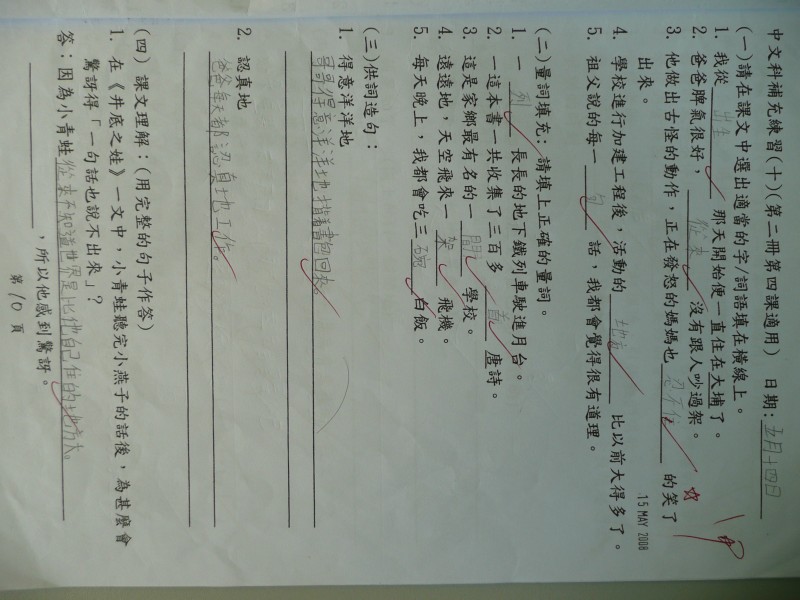 中文科補充練習(十)(第二冊第四課適用) 日期:五月十四日
(一)請在課文中選出適當的字/詞語填在橫線上。
1. 我從 出生 那天開始便一直住在大埔了。
2. 爸爸脾氣很好, 從來 沒有跟人吵過架。
3. 他做出古怪的動作,正在發怒的媽媽也 忍不住 的笑了
出來。
15 MAY 2008
4. 學校進行加建工程後,活動的 地方 比以前大得多了。
5. 祖父說的每一 句 話,我都會覺得很有道理。
(二)量詞填充:請填上正確的量詞。
1. 一 列 長長的地下鐵列車駛進月台。
2. 一這本書一共收集了三百多 首 唐詩。
3. 這是家鄉最有名的一 間 學校。
4. 遠遠地,天空飛來一 架 飛機。
5. 每天晚上,我都會吃三 碗 白飯。
(三)供詞造句:
1. 得意洋洋地
哥哥得意洋洋地揹書包回來。
2. 認真地
爸爸每天都認真地工作。
(四) 課文理解:(用完整的句子作答)
1. 在《井底之蛙》一文中,小青蛙聽完小燕子的話後,為甚麼會
驚訝得「一句話也說不出來」?
答:因為小青蛙從來不知道世界是比他自己住的地方大。
,所以他感到驚訝。
第10頁